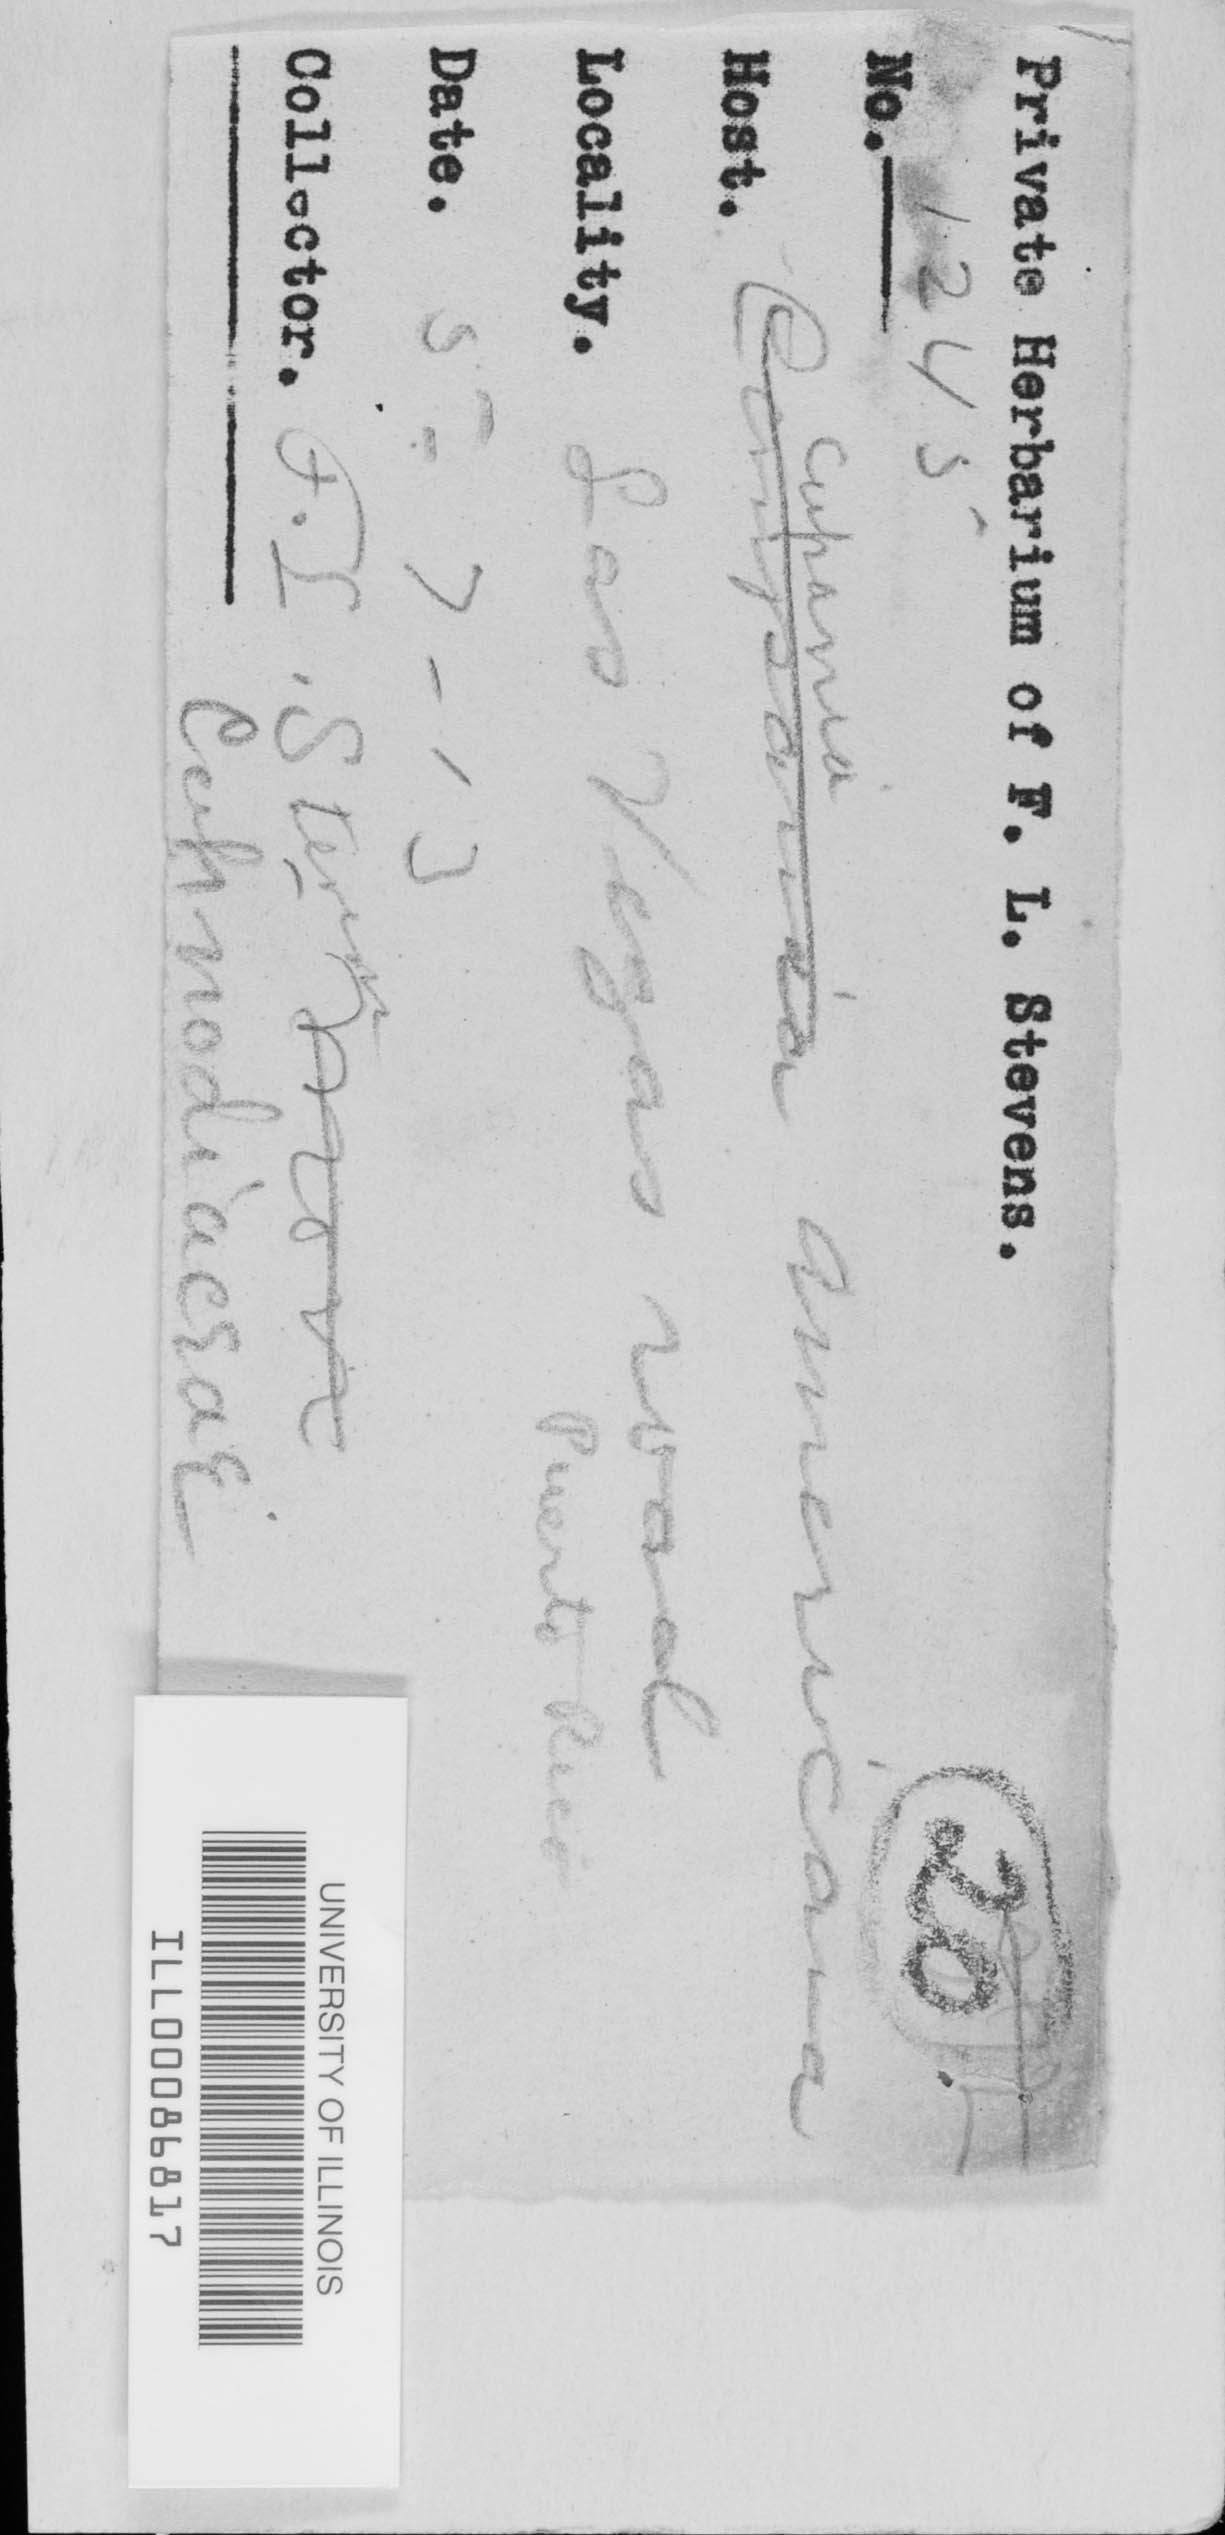 Private Herbarium of F. L. Stevens.
20.
No. 1245
Cupania
Host. Campania americana
Locality. Las Vegas road
Puerto Rico
Date. 5-7-13
Collector. F. L. Stevens
UNIVERSITY OF ILLINOIS
ILL00086817